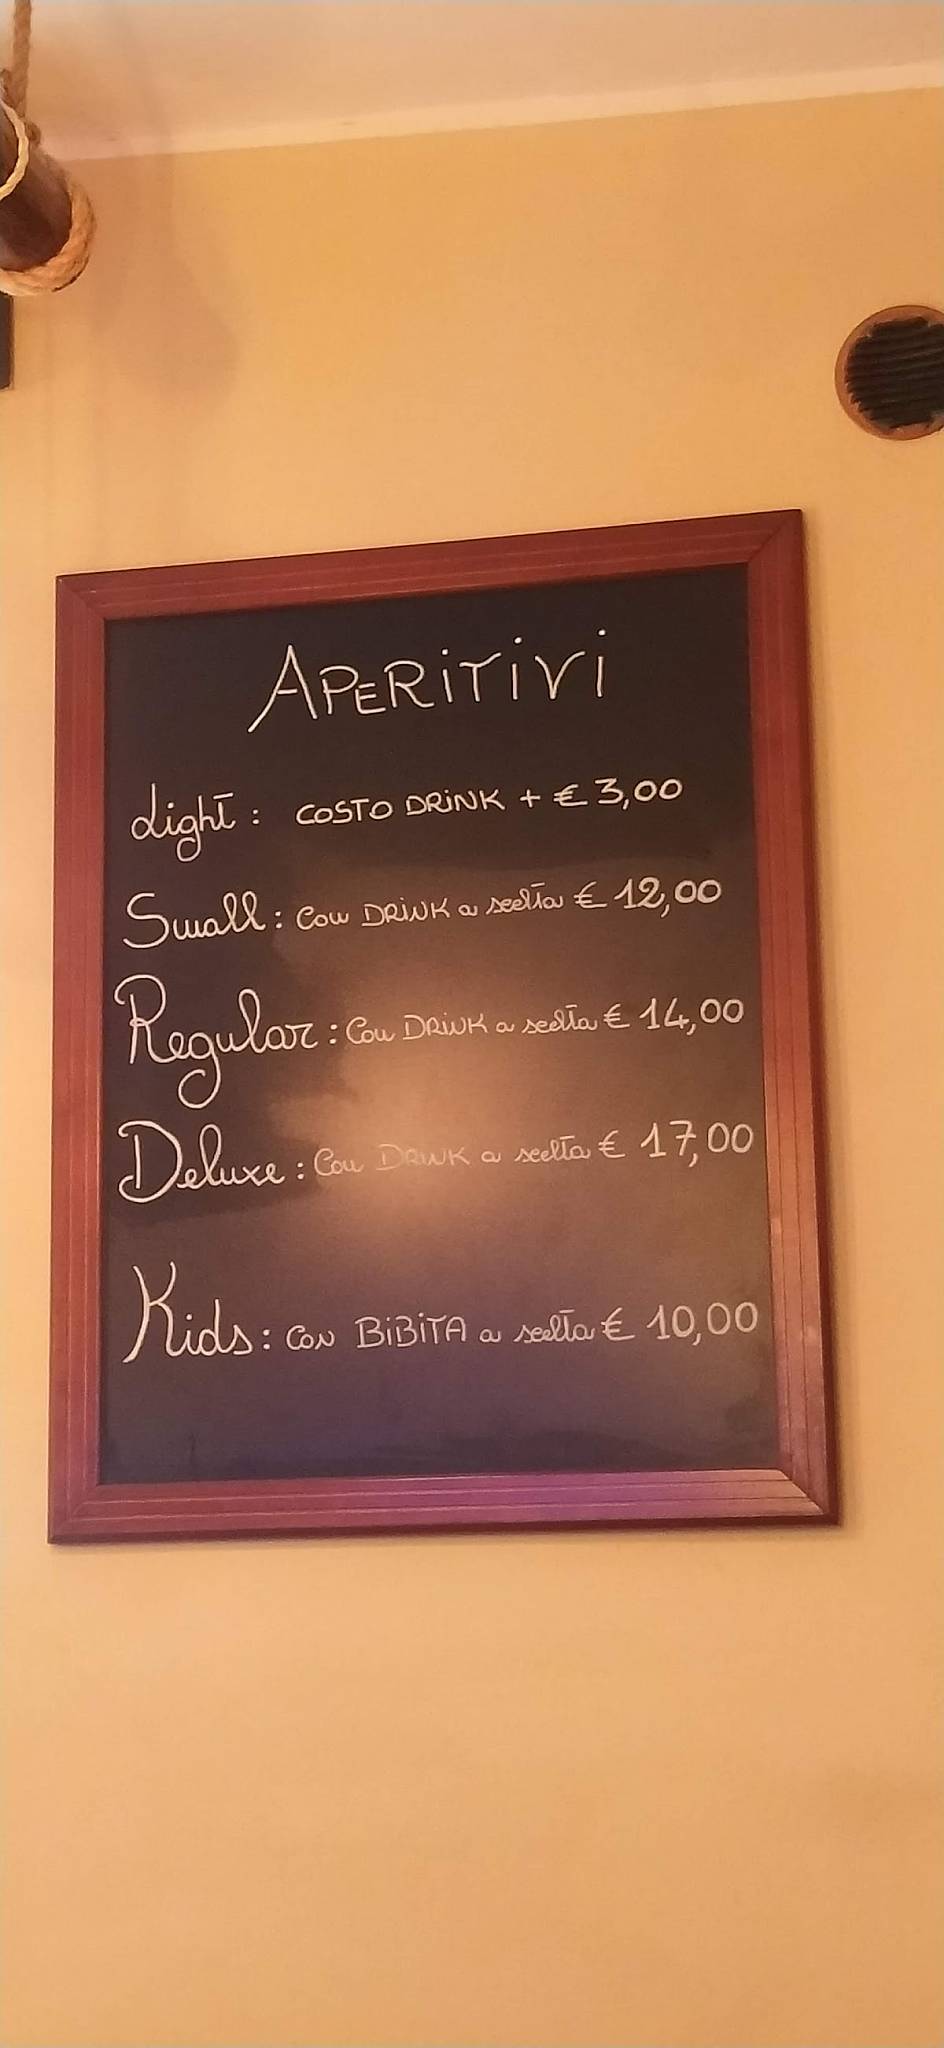 APERITIVI
Light: COSTO DRINK + € 3,00
Small: Con DRINK a scelta € 12,00
Regular: Con DRINK a scelta € 14,00
Deluxe: Con DRINK a scelta € 17,00
Kids: Con BIBITA a scelta € 10,00